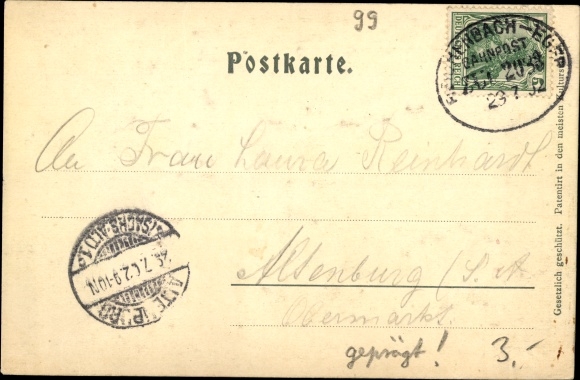 99
Postkarte.
BACH - EGER
BAHNPOST
23 7 02
An Frau Laura Reinhardt
Altenburg (S. A
Obermarkt.
geprägt! 3.-
Gesetzlich geschützt. Patentirt in den meisten Kulturst